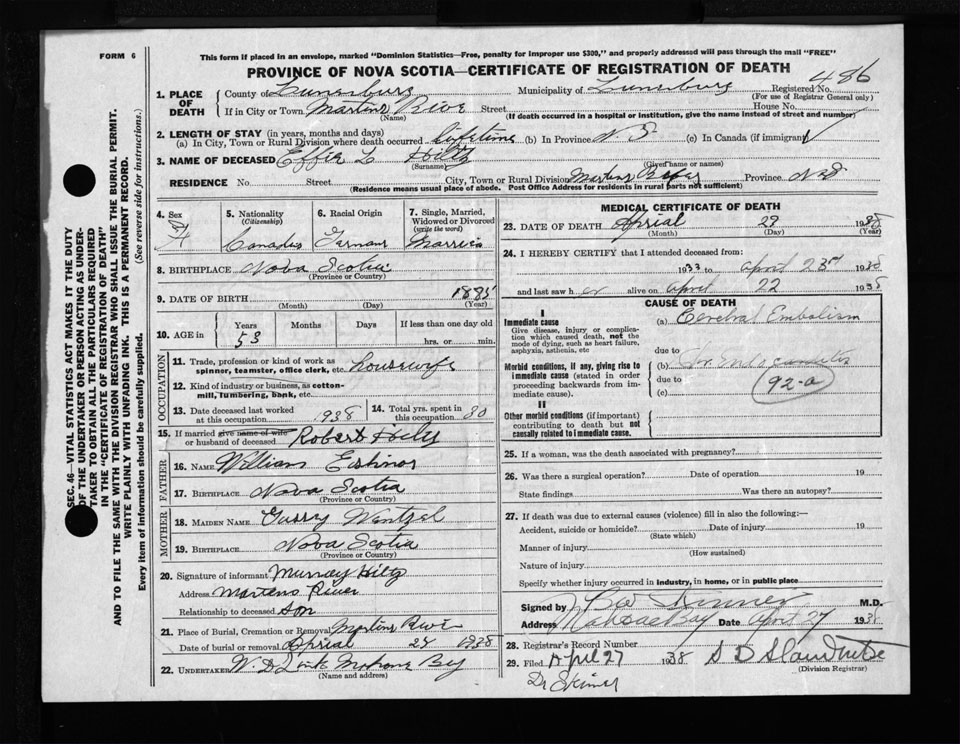 FORM 6
This form if placed in an envelope, marked "Dominion Statistics—Free, penalty for improper use $300," and properly addressed will pass through the mail "FREE"
PROVINCE OF NOVA SCOTIA—CERTIFICATE OF REGISTRATION OF DEATH
486
1. PLACE OF DEATH
County of Lunenburg Municipality of Lunenburg Registered No.
(For use of Registrar General only)
If in City or Town Martins River Street House No.
(Name) (If death occurred in a hospital or institution, give the name instead of street and number)
2. LENGTH OF STAY (in years, months and days)
(a) In City, Town or Rural Division where death occurred lifetime (b) In Province N. S (c) In Canada (if immigrant)
3. NAME OF DECEASED Effie L Hiltz
(Surname) (Given name or names)
RESIDENCE No. Street City, Town or Rural Division Martins River Province N.S
(Residence means usual place of abode. Post Office Address for residents in rural parts not sufficient)
4. Sex F
5. Nationality (Citizenship)
6. Racial Origin German
7. Single, Married, Widowed or Divorced (write the word) Married
8. BIRTHPLACE Nova Scotia
(Province or Country)
9. DATE OF BIRTH 1885
(Month) (Day) (Year)
10. AGE in Years Months Days If less than one day old
53 hrs. or min.
OCCUPATION
11. Trade, profession or kind of work as spinner, teamster, office clerk, etc. housewife
12. Kind of industry or business, as cotton-mill, lumbering, bank, etc.
13. Date deceased last worked at this occupation 1938
14. Total yrs. spent in this occupation 30
15. If married give name of wife or husband of deceased Robert Hiltz
FATHER
16. NAME William
17. BIRTHPLACE Nova Scotia
(Province or Country)
MOTHER
18. MAIDEN NAME Wentzel
19. BIRTHPLACE Nova Scotia
(Province or Country)
20. Signature of informant Murray Hiltz
Address Martens River
Relationship to deceased Son
21. Place of Burial, Cremation or Removal Martins River
Date of burial or removal Aprial 24 1938
22. UNDERTAKER Mahone Bay
(Name and address)
MEDICAL CERTIFICATE OF DEATH
23. DATE OF DEATH Aprial 1938
(Month) (Day) (Year)
24. I HEREBY CERTIFY that I attended deceased from:
1933 to april 23rd 1938
and last saw h er alive on april 22 1938
CAUSE OF DEATH
I
Immediate cause
Give disease, injury or complication which caused death, not the mode of dying, such as heart failure, asphyxia, asthenia, etc
(a) Cerebral Embolism
due to
Morbid conditions, if any, giving rise to immediate cause (stated in order proceeding backwards from immediate cause).
(b)
due to 92-a
(c)
II
Other morbid conditions (if important) contributing to death but not causally related to immediate cause.
25. If a woman, was the death associated with pregnancy?
26. Was there a surgical operation? Date of operation 19
State findings Was there an autopsy?
27. If death was due to external causes (violence) fill in also the following:—
Accident, suicide or homicide? Date of injury 19
(State which)
Manner of injury
(How sustained)
Nature of injury
Specify whether injury occurred in industry, in home, or in public place
Signed by M.D.
Address Mahone Bay Date April 27 1938
28. Registrar's Record Number
29. Filed April 27 1938
(Division Registrar)
Dr Skinner
SEC. 46—VITAL STATISTICS ACT MAKES IT THE DUTY
OF THE UNDERTAKER OR PERSON ACTING AS UNDER-
TAKER TO OBTAIN ALL THE PARTICULARS REQUIRED
IN THE "CERTIFICATE OF REGISTRATION OF DEATH"
AND TO FILE THE SAME WITH THE DIVISION REGISTRAR WHO SHALL ISSUE THE BURIAL PERMIT.
WRITE PLAINLY WITH UNFADING INK. THIS IS A PERMANENT RECORD.
Every item of information should be carefully supplied. (See reverse side for instructions.)